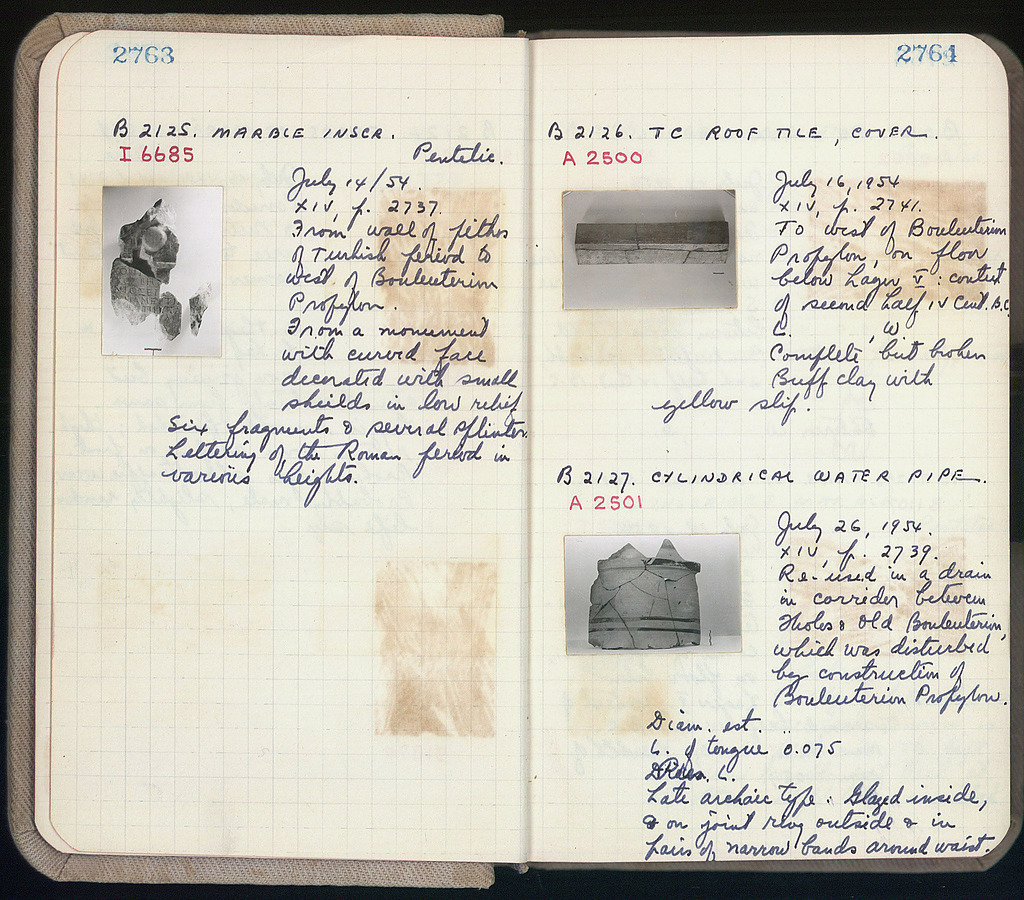 2763
B 2125. MARBLE INSCR.
I 6685
Pentelic.
July 14/54.
XIV, p. 2737.
From wall of pithos
of Turkish period to
west of Bouleuterion
Propylon.
From a monument
with curved face
decorated with small
shields in low relief.
Six fragments & several splinters.
Lettering of the Roman period in
various heights.
2764
B 2126. TC ROOF TILE, COVER.
A 2500
July 16, 1954
XIV, p. 2741.
To west of Bouleuterion
Propylon, on floor
below Layer V: context
of second half IV Cent. B.C.
L. W
Complete, but broken
Buff clay with
yellow slip.
B 2127. CYLINDRICAL WATER PIPE.
A 2501
July 26, 1954.
XIV, p. 2739.
Re-used in a drain
in corridor between
Tholos & Old Bouleuterion,
which was disturbed
by construction of
Bouleuterion Propylon.
Diam. est. ..
L. of tongue 0.075
Pres. L.
Late archaic type. Glazed inside,
& on joint ring outside & in
pairs of narrow bands around waist.